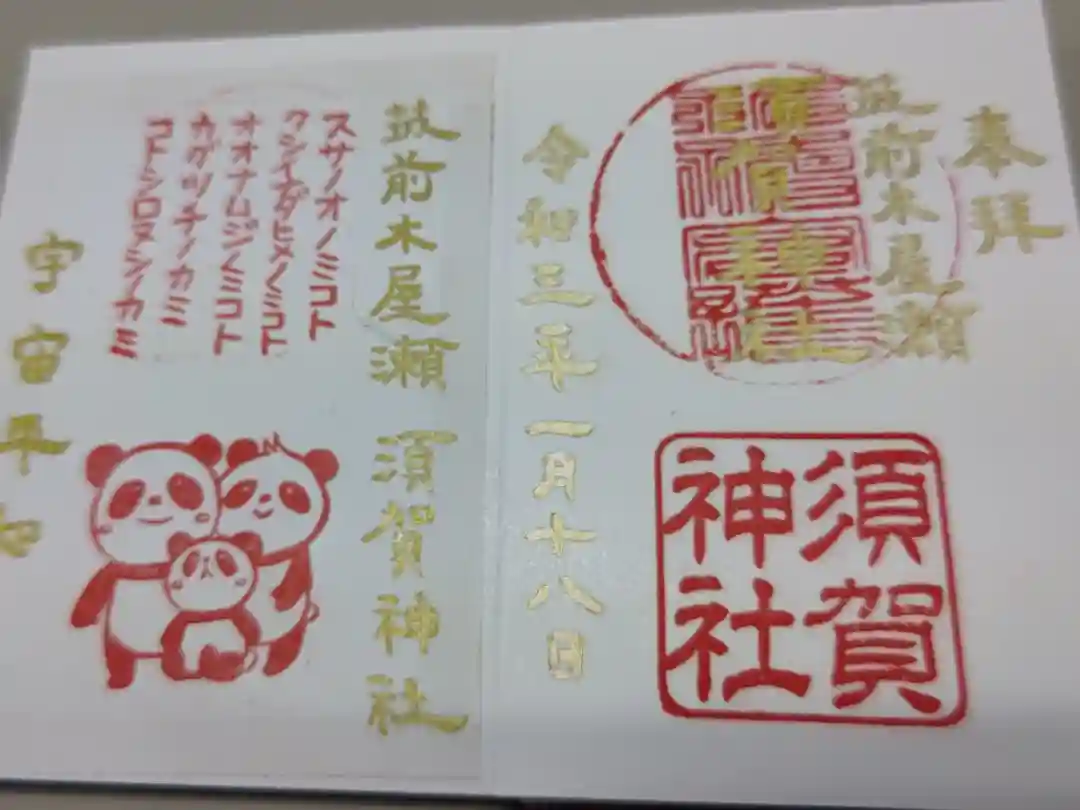 奉拝
筑前木屋瀬
須賀神社
須賀
神社
令和三年一月十八日
筑前木屋瀬 須賀神社
スサノオノミコト
クシイナダヒメノミコト
オオナムジノミコト
カグツチノカミ
コトシロヌシノカミ
宇宙平和